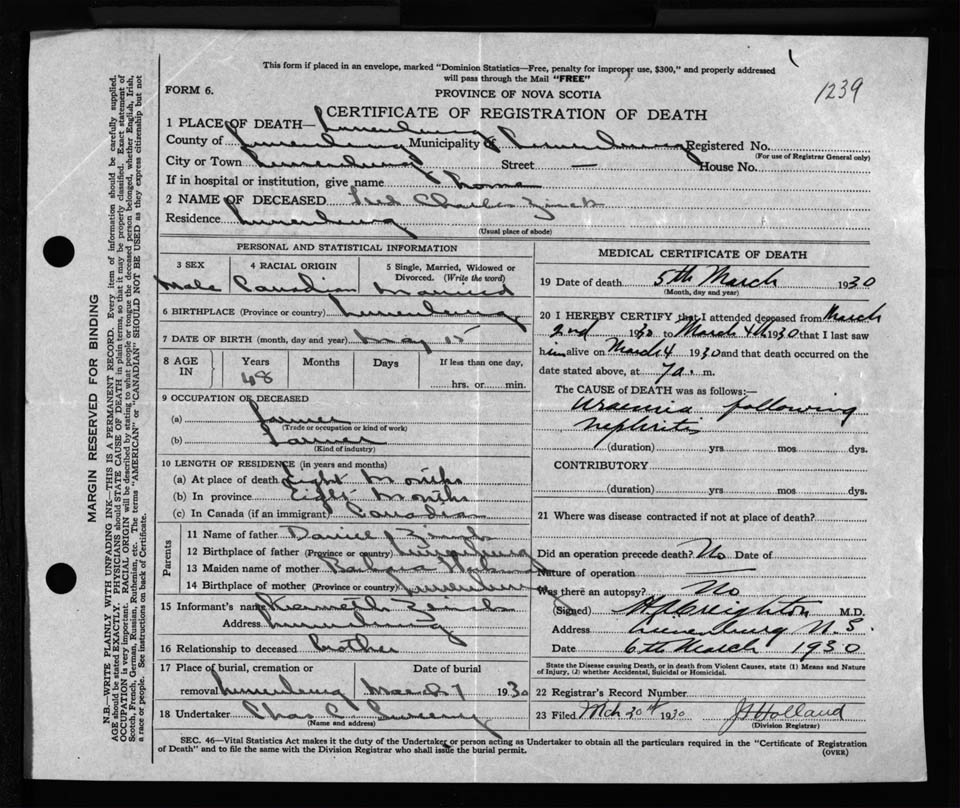 This form if placed in an envelope, marked "Dominion Statistics—Free, penalty for improper use, $300," and properly addressed
will pass through the Mail "FREE"
1239
FORM 6.
PROVINCE OF NOVA SCOTIA
CERTIFICATE OF REGISTRATION OF DEATH
1 PLACE OF DEATH— Lunenburg
County of Lunenburg Municipality of Lunenburg Registered No.
(For use of Registrar General only)
City or Town Lunenburg Street — House No.
If in hospital or institution, give name
2 NAME OF DECEASED Fred Charles Zinck
Residence Lunenburg
(Usual place of abode)
PERSONAL AND STATISTICAL INFORMATION
3 SEX 4 RACIAL ORIGIN 5 Single, Married, Widowed or Divorced. (Write the word)
Male Canadian Married
6 BIRTHPLACE (Province or country) Lunenburg
7 DATE OF BIRTH (month, day and year) May 15
8 AGE IN Years Months Days If less than one day,
68
hrs. or min.
9 OCCUPATION OF DECEASED
(a) Farmer
(Trade or occupation or kind of work)
(b) Farmer
(Kind of industry)
10 LENGTH OF RESIDENCE (in years and months)
(a) At place of death Eight Months
(b) In province Eight Months
(c) In Canada (if an immigrant) Canadian
Parents
11 Name of father Daniel J Zinck
12 Birthplace of father (Province or country) Lunenburg
13 Maiden name of mother Barbara
14 Birthplace of mother (Province or country) Lunenburg
15 Informant's name Kenneth Zinck
Address Lunenburg
16 Relationship to deceased brother
17 Place of burial, cremation or removal Lunenburg Date of burial March 7 1930
18 Undertaker Chas C Sweeny
(Name and address)
MEDICAL CERTIFICATE OF DEATH
19 Date of death 5th March 1930
(Month, day and year)
20 I HEREBY CERTIFY that I attended deceased from March
2nd 1930 to March 4th 1930 that I last saw
him alive on March 4 1930 and that death occurred on the
date stated above, at 7 a. m.
The CAUSE of DEATH was as follows:—
Uraemia following
nephritis
(duration) yrs mos dys.
CONTRIBUTORY
(duration) yrs. mos. dys.
21 Where was disease contracted if not at place of death?
Did an operation precede death? No Date of
Nature of operation
Was there an autopsy? No
(Signed) H A Creighton M.D.
Address Lunenburg N.S.
Date 6th March 1930
State the Disease causing Death, or in death from Violent Causes, state (1) Means and Nature
of Injury, (2) whether Accidental, Suicidal or Homicidal.
22 Registrar's Record Number
23 Filed Mch 30th 1930 J Holland
(Division Registrar)
SEC. 46—Vital Statistics Act makes it the duty of the Undertaker or person acting as Undertaker to obtain all the particulars required in the "Certificate of Registration
of Death" and to file the same with the Division Registrar who shall issue the burial permit.
(OVER)
MARGIN RESERVED FOR BINDING
N.B.—WRITE PLAINLY WITH UNFADING INK—THIS IS A PERMANENT RECORD. Every item of information should be carefully supplied.
AGE should be stated EXACTLY. PHYSICIANS should STATE CAUSE OF DEATH in plain terms, so that it may be properly classified. Exact statement of
OCCUPATION is very important. RACIAL ORIGIN will be described by stating to what people or tongue the deceased person belonged, whether English, Irish,
Scotch, French, German, Russian, Ruthenian, etc. The terms "AMERICAN" or "CANADIAN" SHOULD NOT BE USED as they express citizenship but not
a race or people. See instructions on back of Certificate.